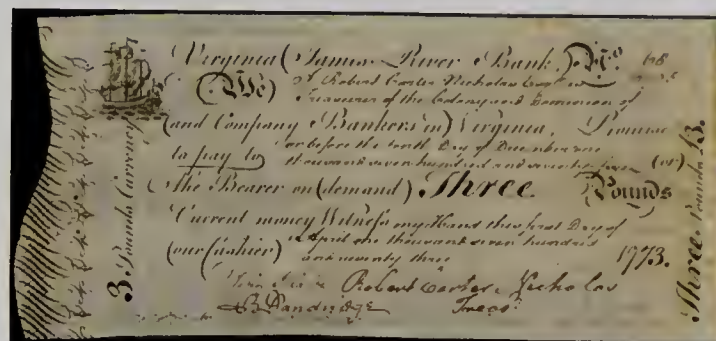 Virginia (James River Bank,) No
(We) I Robert Carter Nicholas Esqr
Treasurer of the Colony and Dominion of
(and Company Bankers in) Virginia, Promise
to pay to or before the tenth Day of December one
thousand seven hundred and seventy (or)
the Bearer on (demand) Three (Pounds
Current money Witness my Hand this first Day of
(our Cashier) April one thousand seven hundred
and seventy three 1773.
Robert Carter Nicholas
Treasr
3. Pounds Currency
Three Pounds £3.